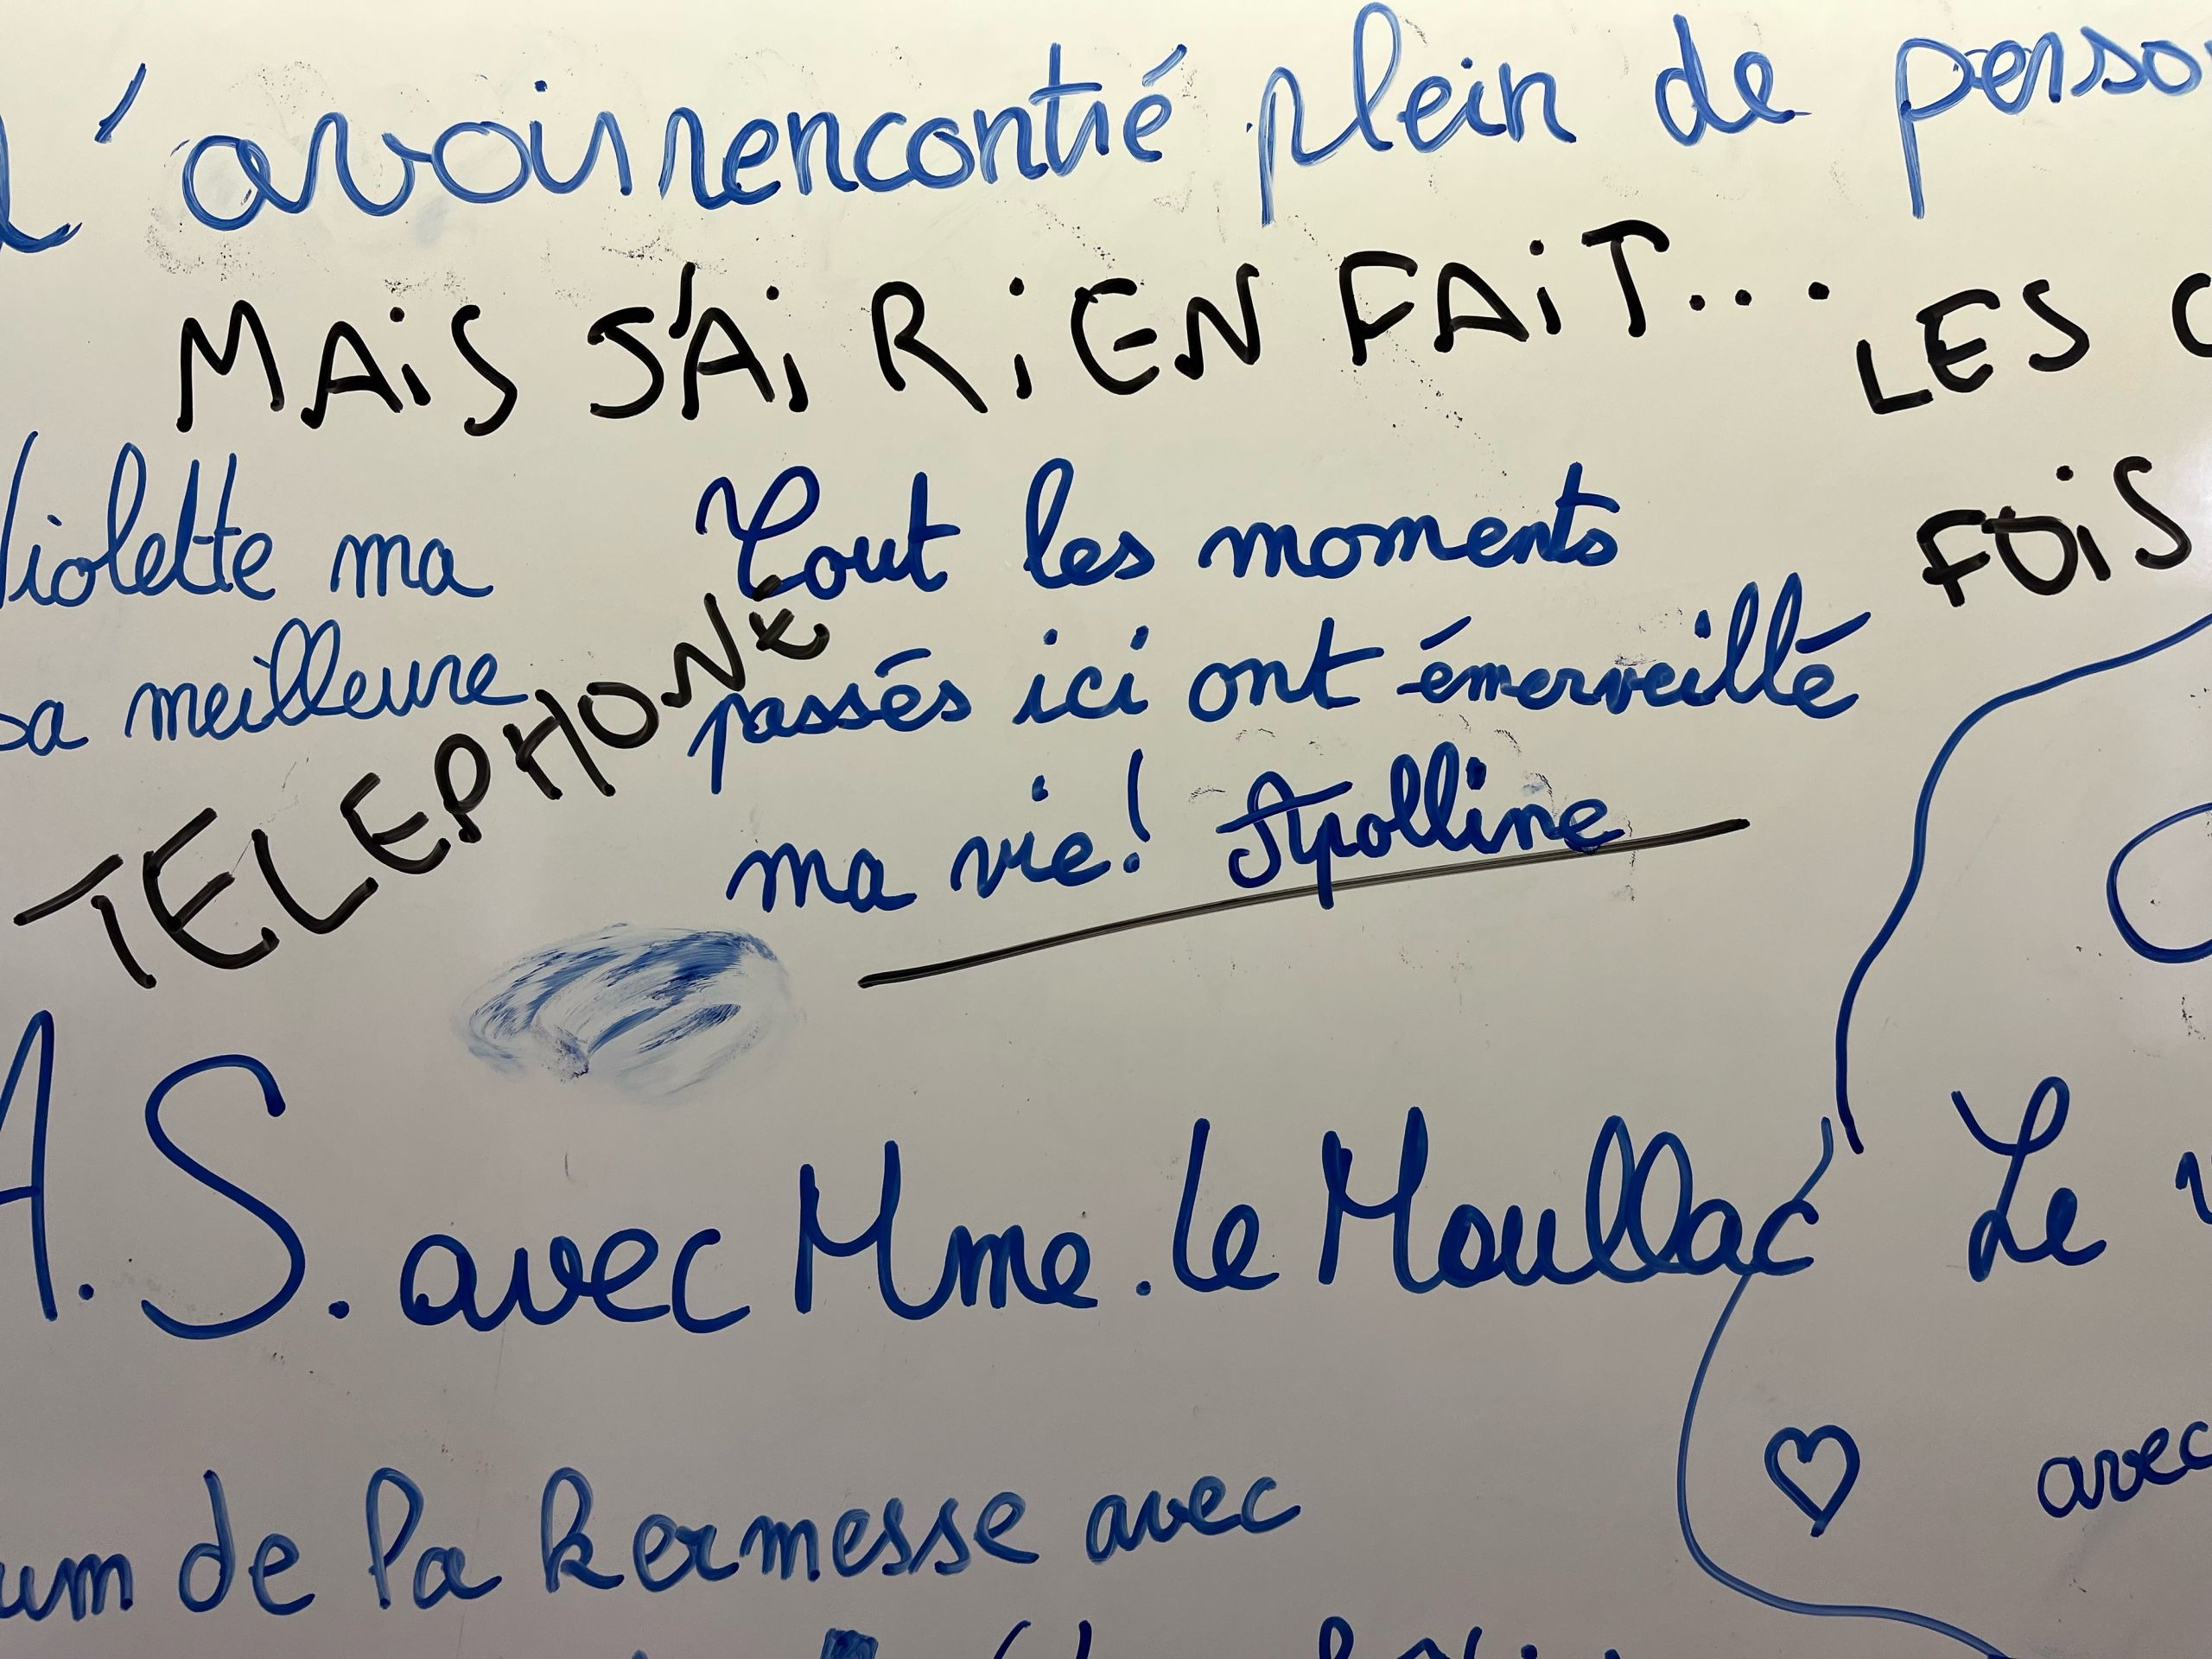 d'avoir rencontré plein de perso
MAiS J'Ai RiEN FAiT... LES
FOiS
Violette ma
sa meilleure
TELEPHONE
Tout les moments
passés ici ont émerveillé
ma vie! Apolline
A.S. avec Mme. le Moullac
Le
avec
um de la kermesse avec